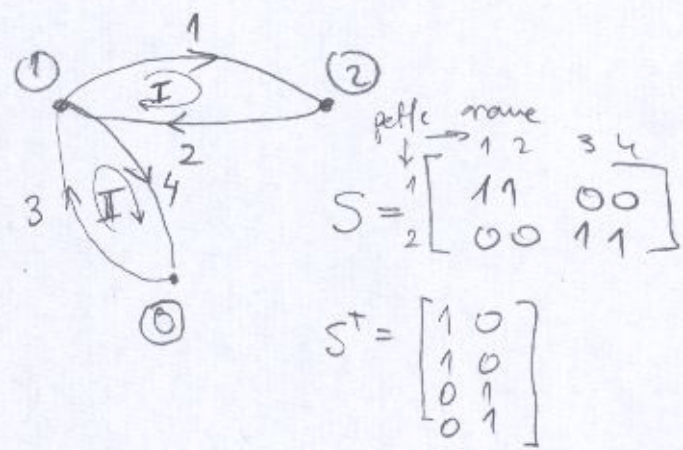 1
① ②
I
2
3 II 4
⓪
petlje
1 2 3 4
S = 1 [ 1 1 0 0 ]
2 [ 0 0 1 1 ]
Sᵀ = [ 1 0 ]
[ 1 0 ]
[ 0 1 ]
[ 0 1 ]